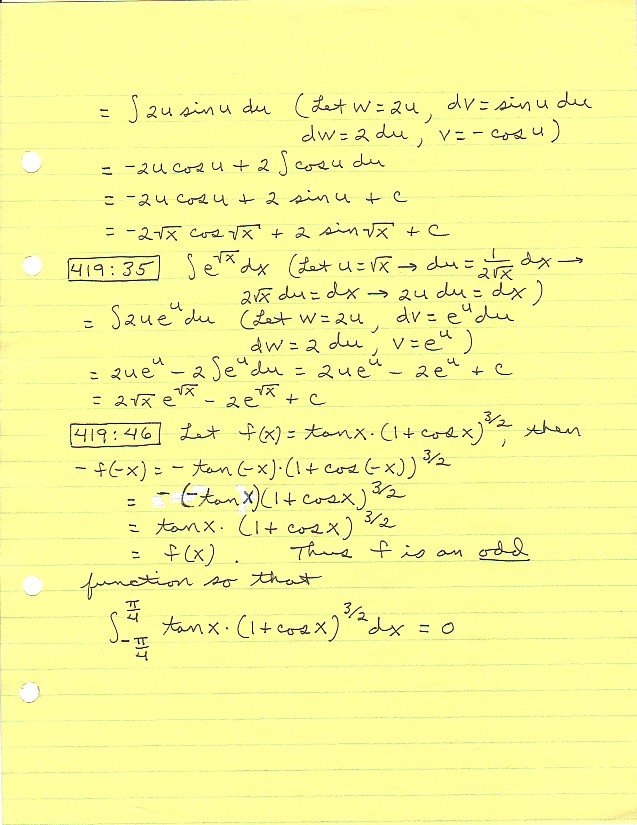 = ∫ 2u sin u du (Let w = 2u, dv = sin u du
dw = 2 du, v = -cos u)
= -2u cos u + 2 ∫ cos u du
= -2u cos u + 2 sin u + c
= -2√x cos √x + 2 sin √x + c
419:35 ∫ e^√x dx (Let u = √x → du = 1/(2√x) dx →
2√x du = dx → 2u du = dx)
= ∫ 2u e^u du (Let w = 2u, dv = e^u du
dw = 2 du, v = e^u)
= 2u e^u - 2 ∫ e^u du = 2u e^u - 2e^u + c
= 2√x e^√x - 2e^√x + c
419:46 Let f(x) = tan x · (1 + cos x)^3/2, then
- f(-x) = - tan(-x) · (1 + cos(-x))^3/2
= - (-tan x)(1 + cos x)^3/2
= tan x · (1 + cos x)^3/2
= f(x). Thus f is an odd
function so that
∫_{-π/4}^{π/4} tan x · (1 + cos x)^3/2 dx = 0